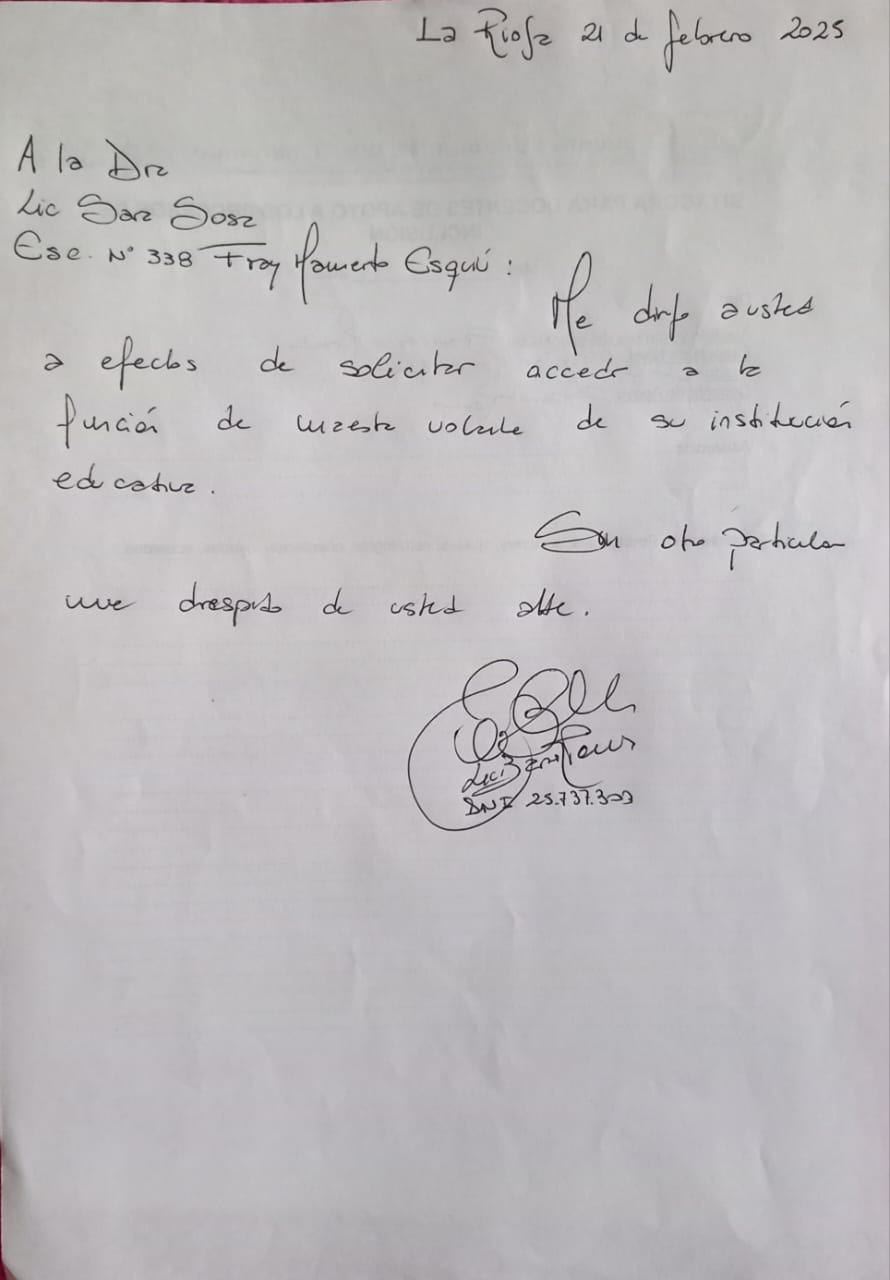 La Rioja 21 de febrero 2025
A la Dra
Lic Sara Sosa
Esc. N° 338 Fray Mamerto Esquiú :
Me dirijo a usted
a efectos de solicitar acceder a la
función de maestra volante de su institución
educativa.
Sin otro particular
me despido de usted atte.
Lic.
DNI 25.737.300